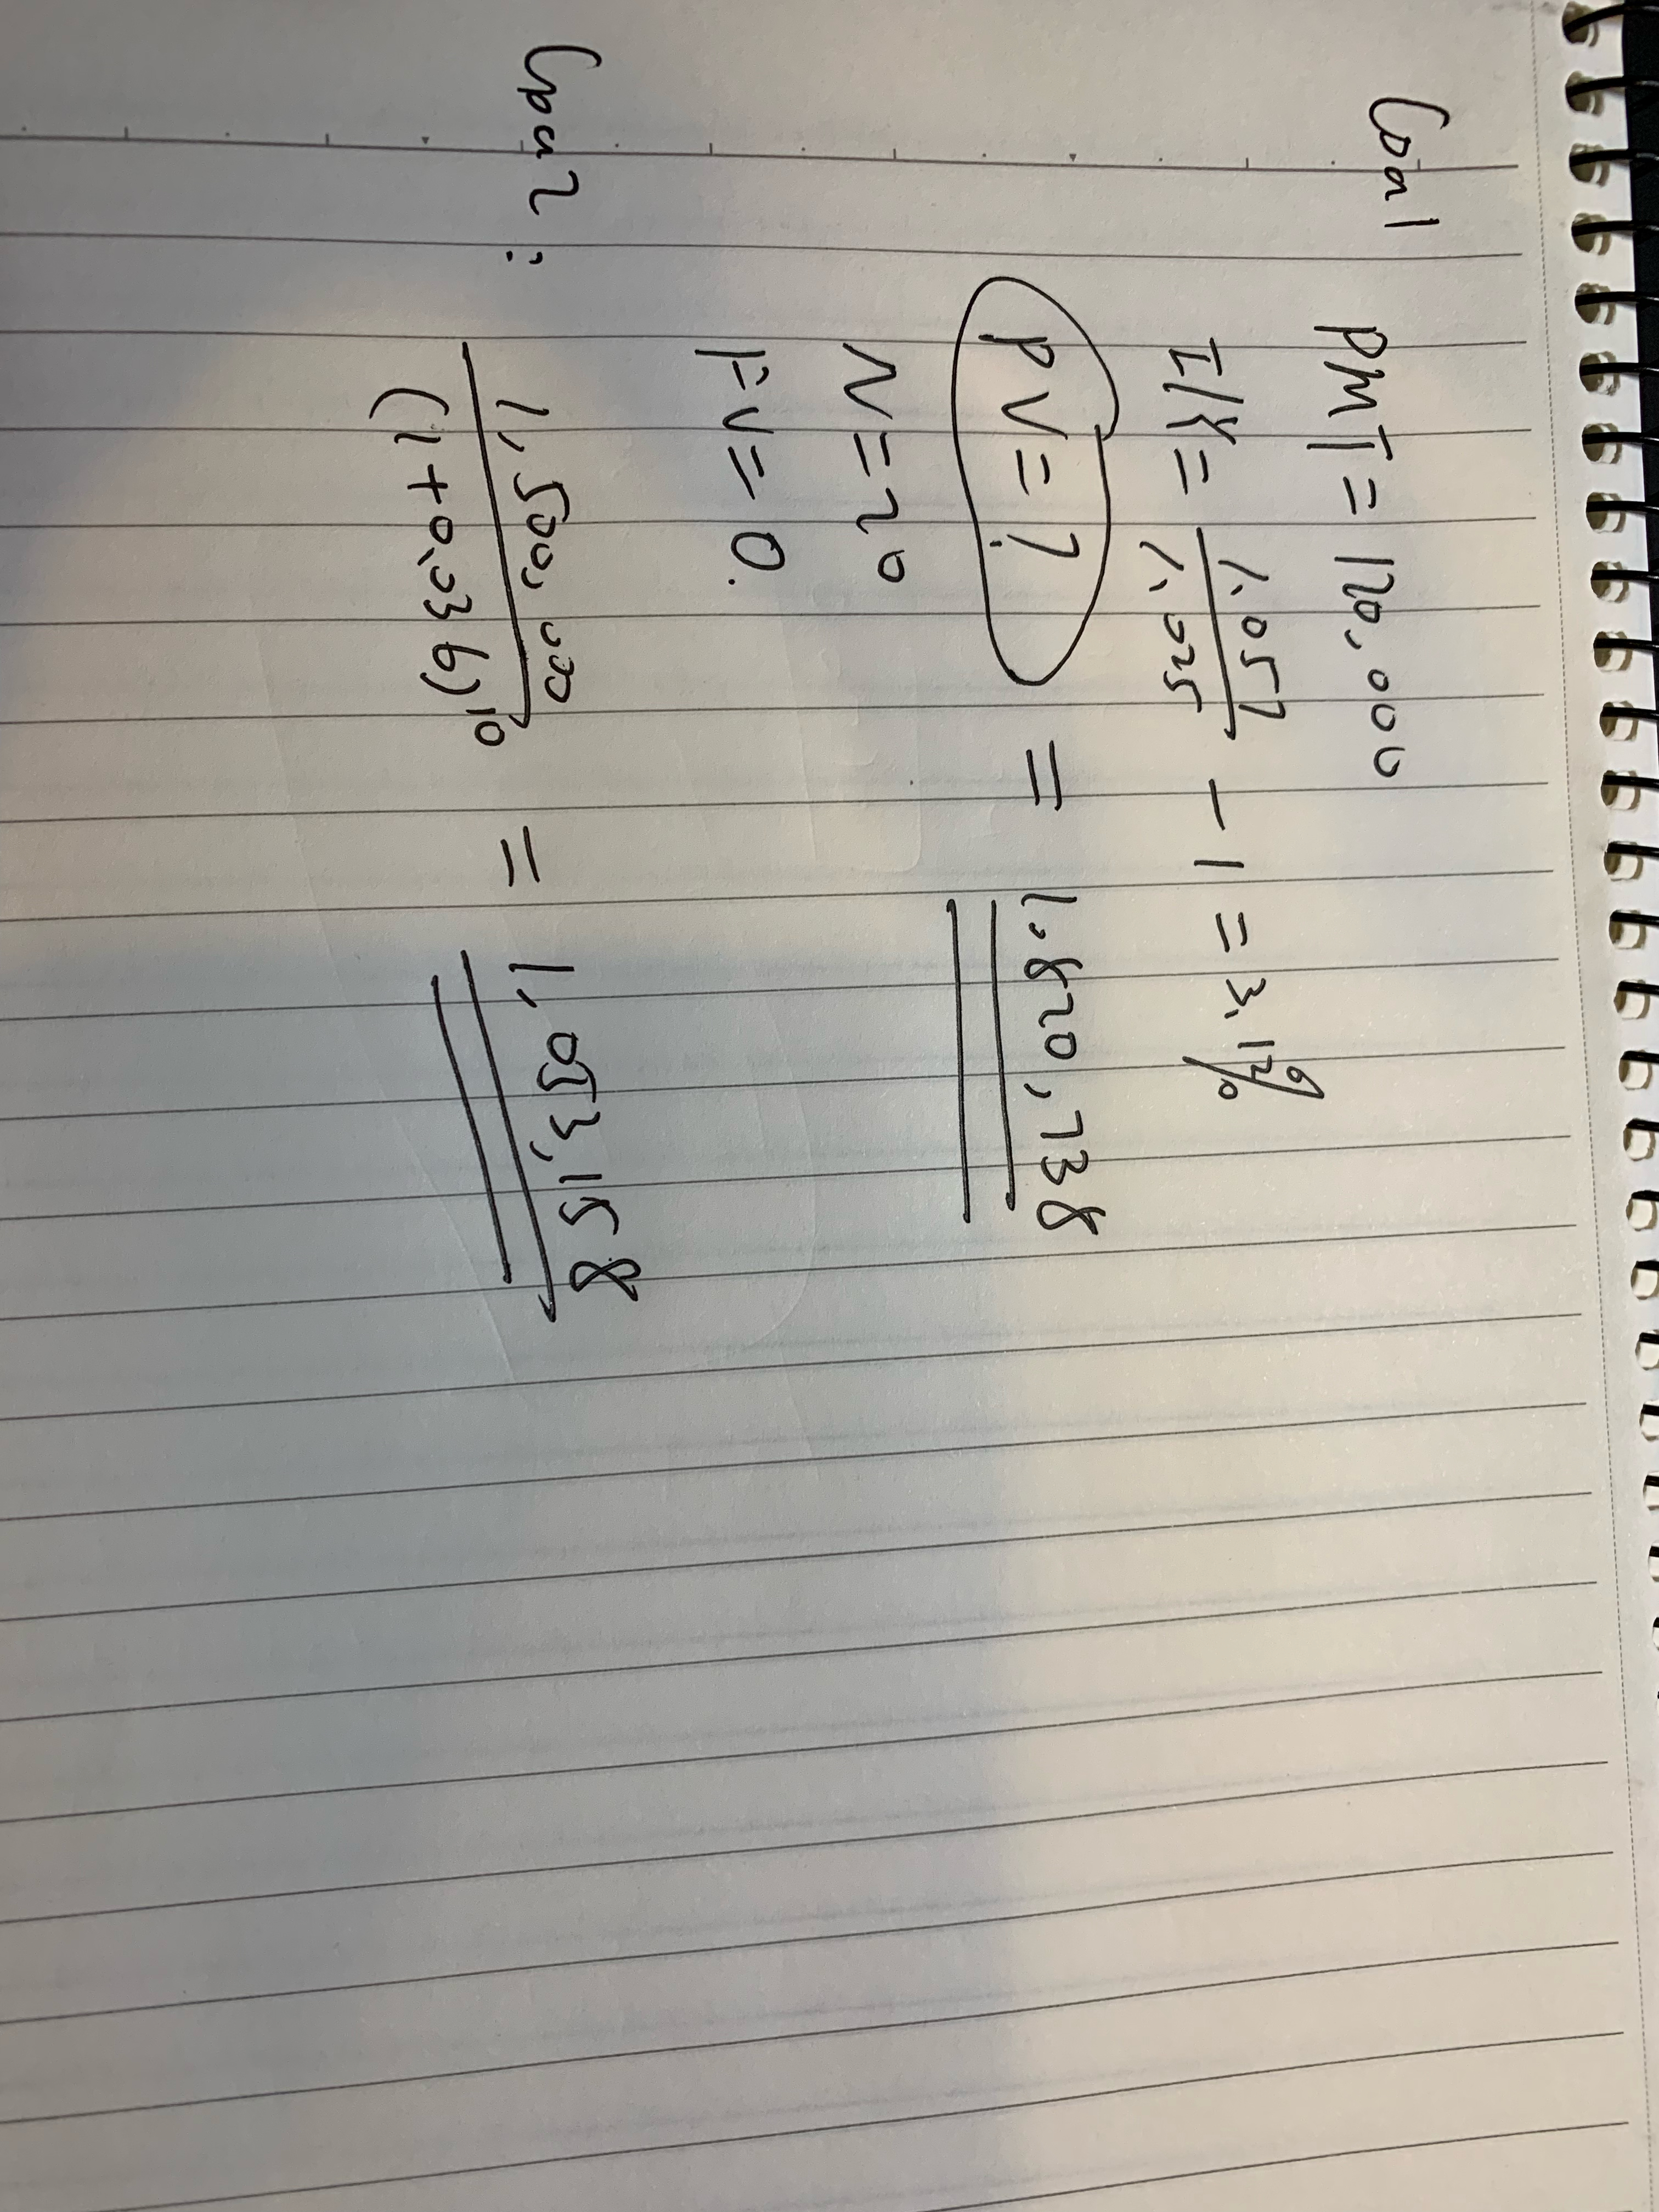 Goal
PMT = 120,000
I/Y = 1.057/1.025 - 1 = 3.12%
PV = ? = 1,820,738
N = 20
FV = 0.
Goal 2 :
1,500,000/(1+0.036)^10 = 1,053,158